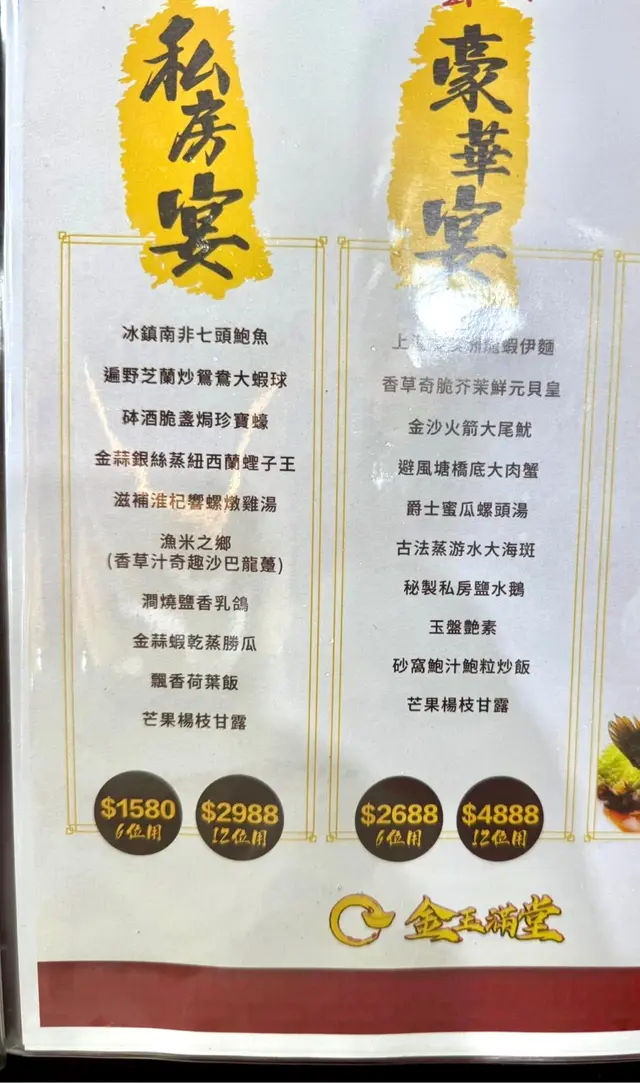 私房宴
冰鎮南非七頭鮑魚
遍野芝蘭炒鴛鴦大蝦球
砵酒脆盞焗珍寶蠔
金蒜銀絲蒸紐西蘭蟶子王
滋補淮杞響螺燉雞湯
漁米之鄉
(香草汁奇趣沙巴龍躉)
澗燒鹽香乳鴿
金蒜蝦乾蒸勝瓜
飄香荷葉飯
芒果楊枝甘露
$1580
6位用
$2988
12位用
豪華宴
上 龍蝦伊麵
香草奇脆芥茉鮮元貝皇
金沙火箭大尾魷
避風塘橋底大肉蟹
爵士蜜瓜螺頭湯
古法蒸游水大海斑
秘製私房鹽水鵝
玉盤艷素
砂窩鮑汁鮑粒炒飯
芒果楊枝甘露
$2688
6位用
$4888
12位用
金玉滿堂